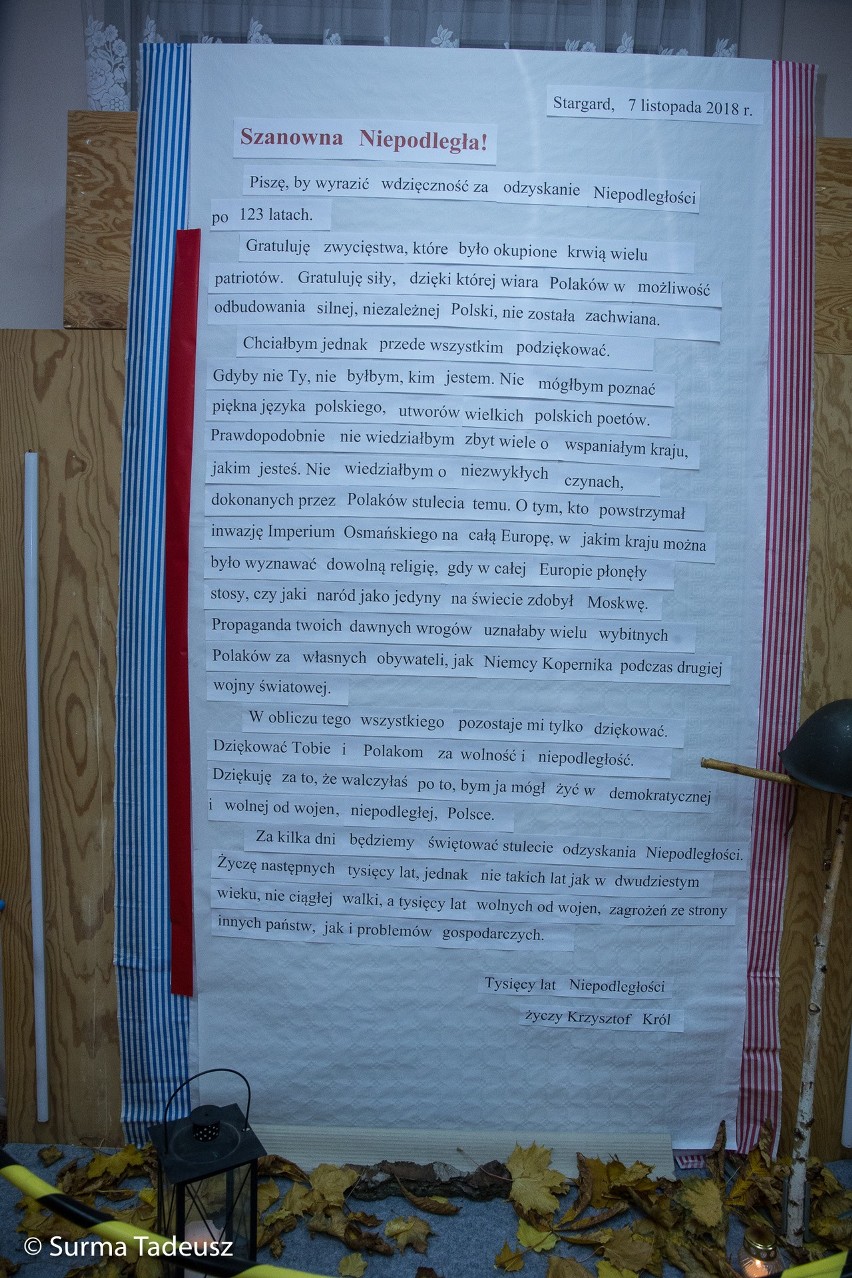 Stargard, 7 listopada 2018 r.
Szanowna Niepodległa!
Piszę, by wyrazić wdzięczność za odzyskanie Niepodległości
po 123 latach.
Gratuluję zwycięstwa, które było okupione krwią wielu
patriotów. Gratuluję siły, dzięki której wiara Polaków w możliwość
odbudowania silnej, niezależnej Polski, nie została zachwiana.
Chciałbym jednak przede wszystkim podziękować.
Gdyby nie Ty, nie byłbym, kim jestem. Nie mógłbym poznać
piękna języka polskiego, utworów wielkich polskich poetów.
Prawdopodobnie nie wiedziałbym zbyt wiele o wspaniałym kraju,
jakim jesteś. Nie wiedziałbym o niezwykłych czynach,
dokonanych przez Polaków stulecia temu. O tym, kto powstrzymał
inwazję Imperium Osmańskiego na całą Europę, w jakim kraju można
było wyznawać dowolną religię, gdy w całej Europie płonęły
stosy, czy jaki naród jako jedyny na świecie zdobył Moskwę.
Propaganda twoich dawnych wrogów uznałaby wielu wybitnych
Polaków za własnych obywateli, jak Niemcy Kopernika podczas drugiej
wojny światowej.
W obliczu tego wszystkiego pozostaje mi tylko dziękować.
Dziękować Tobie i Polakom za wolność i niepodległość.
Dziękuję za to, że walczyłaś po to, bym ja mógł żyć w demokratycznej
i wolnej od wojen, niepodległej, Polsce.
Za kilka dni będziemy świętować stulecie odzyskania Niepodległości.
Życzę następnych tysięcy lat, jednak nie takich lat jak w dwudziestym
wieku, nie ciągłej walki, a tysięcy lat wolnych od wojen, zagrożeń ze strony
innych państw, jak i problemów gospodarczych.
Tysięcy lat Niepodległości
życzy Krzysztof Król
© Surma Tadeusz